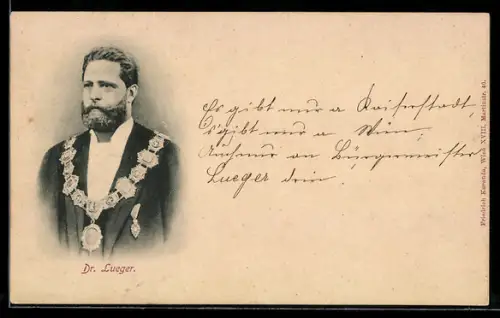 Es gibt nur a Kaiserstadt,
's gibt nur a Wien,
an Bürgermeister
Lueger drin.
Dr. Lueger.
Friedrich Karunda, Wien XVIII, Martinstr. 46.